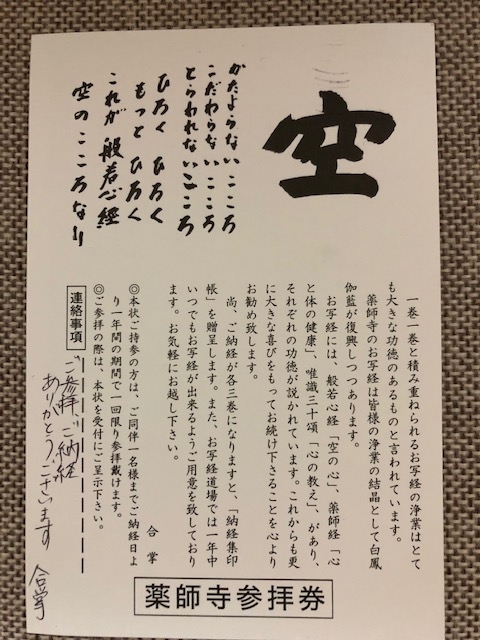 空
かたよらないこころ
こだわらないこころ
とらわれないこころ
ひろく ひろく
もっと ひろく
これが 般若心經
空のこころなり
一巻一巻と積み重ねられるお写経の浄業はとて
も大きな功徳のあるものと言われています。
薬師寺のお写経は皆様の浄業の結晶として白鳳
伽藍が復興しつつあります。
お写経には、般若心経「空の心」、薬師経「心
と体の健康」、唯識三十頌「心の教え」、があり、
それぞれの功徳が説かれています。これからも更
に大きな喜びをもってお続け下さることを心より
お勧め致します。
尚、ご納経が各三巻になりますと、「納経集印
帳」を贈呈します。また、お写経道場では一年中
いつでもお写経が出来るようご用意を致しており
ます。お気軽にお越し下さい。
合掌
◎本状ご持参の方は、ご同伴一名様までご納経日よ
り一年間の期間で一回限り参拝戴けます。
◎ご参拝の際は、本状を受付にご呈示下さい。
連絡事項
ご参拝、ご納経
ありがとうございます
合掌
薬師寺参拝券